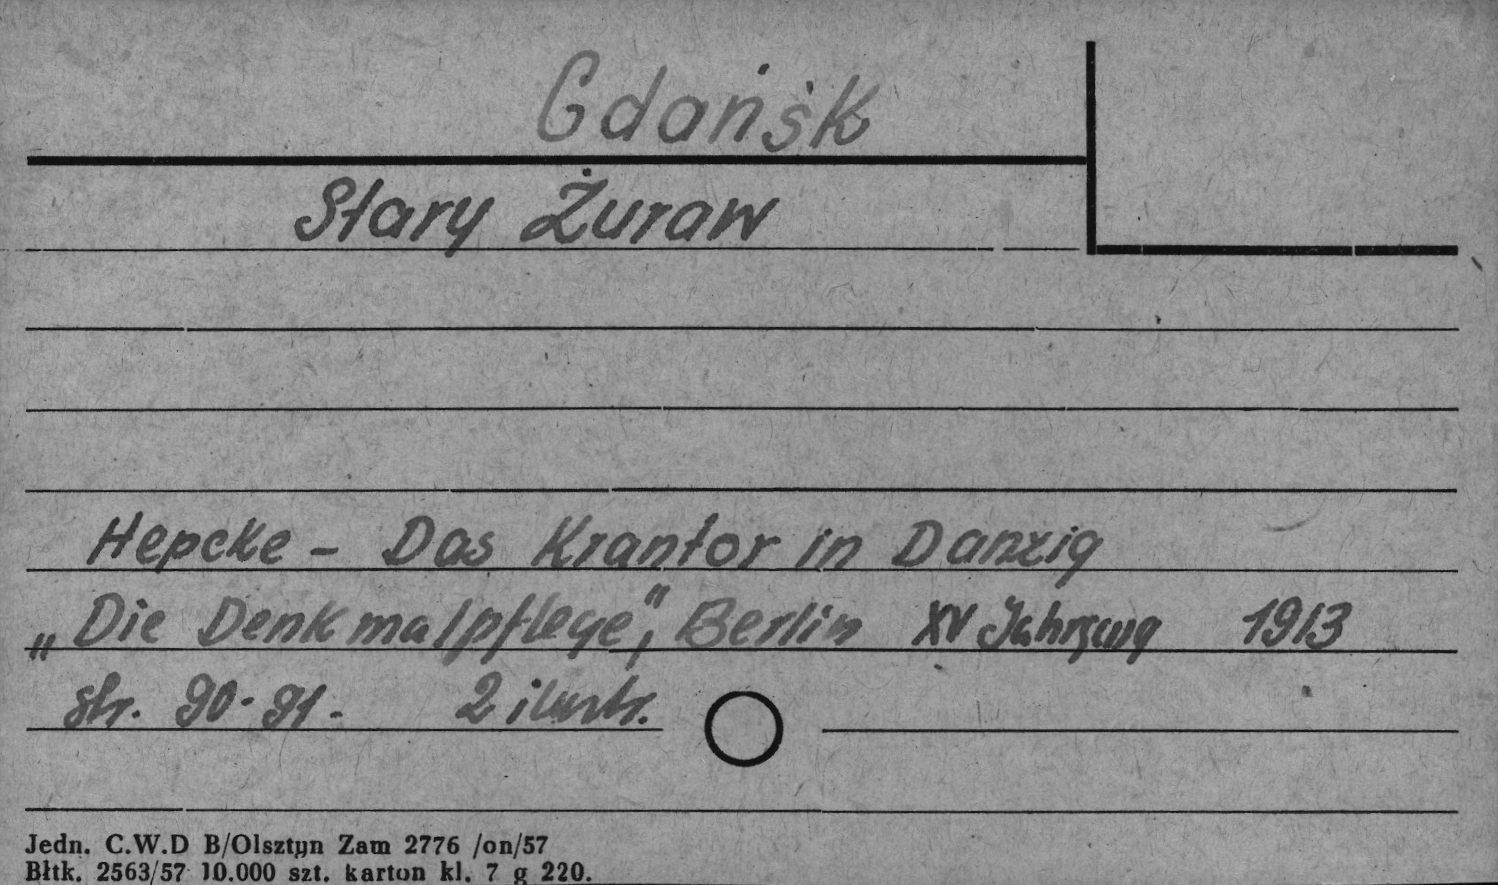 Gdańsk
Stary Żuraw
Hepcke - Das Krantor in Danzig
„Die Denkmalpflege", Berlin XV Jahrgang 1913
str. 90-91. 2 ilustr.
Jedn. C.W.D B/Olsztyn Zam 2776 /on/57
Błtk. 2563/57 10.000 szt. karton kl. 7 g 220.